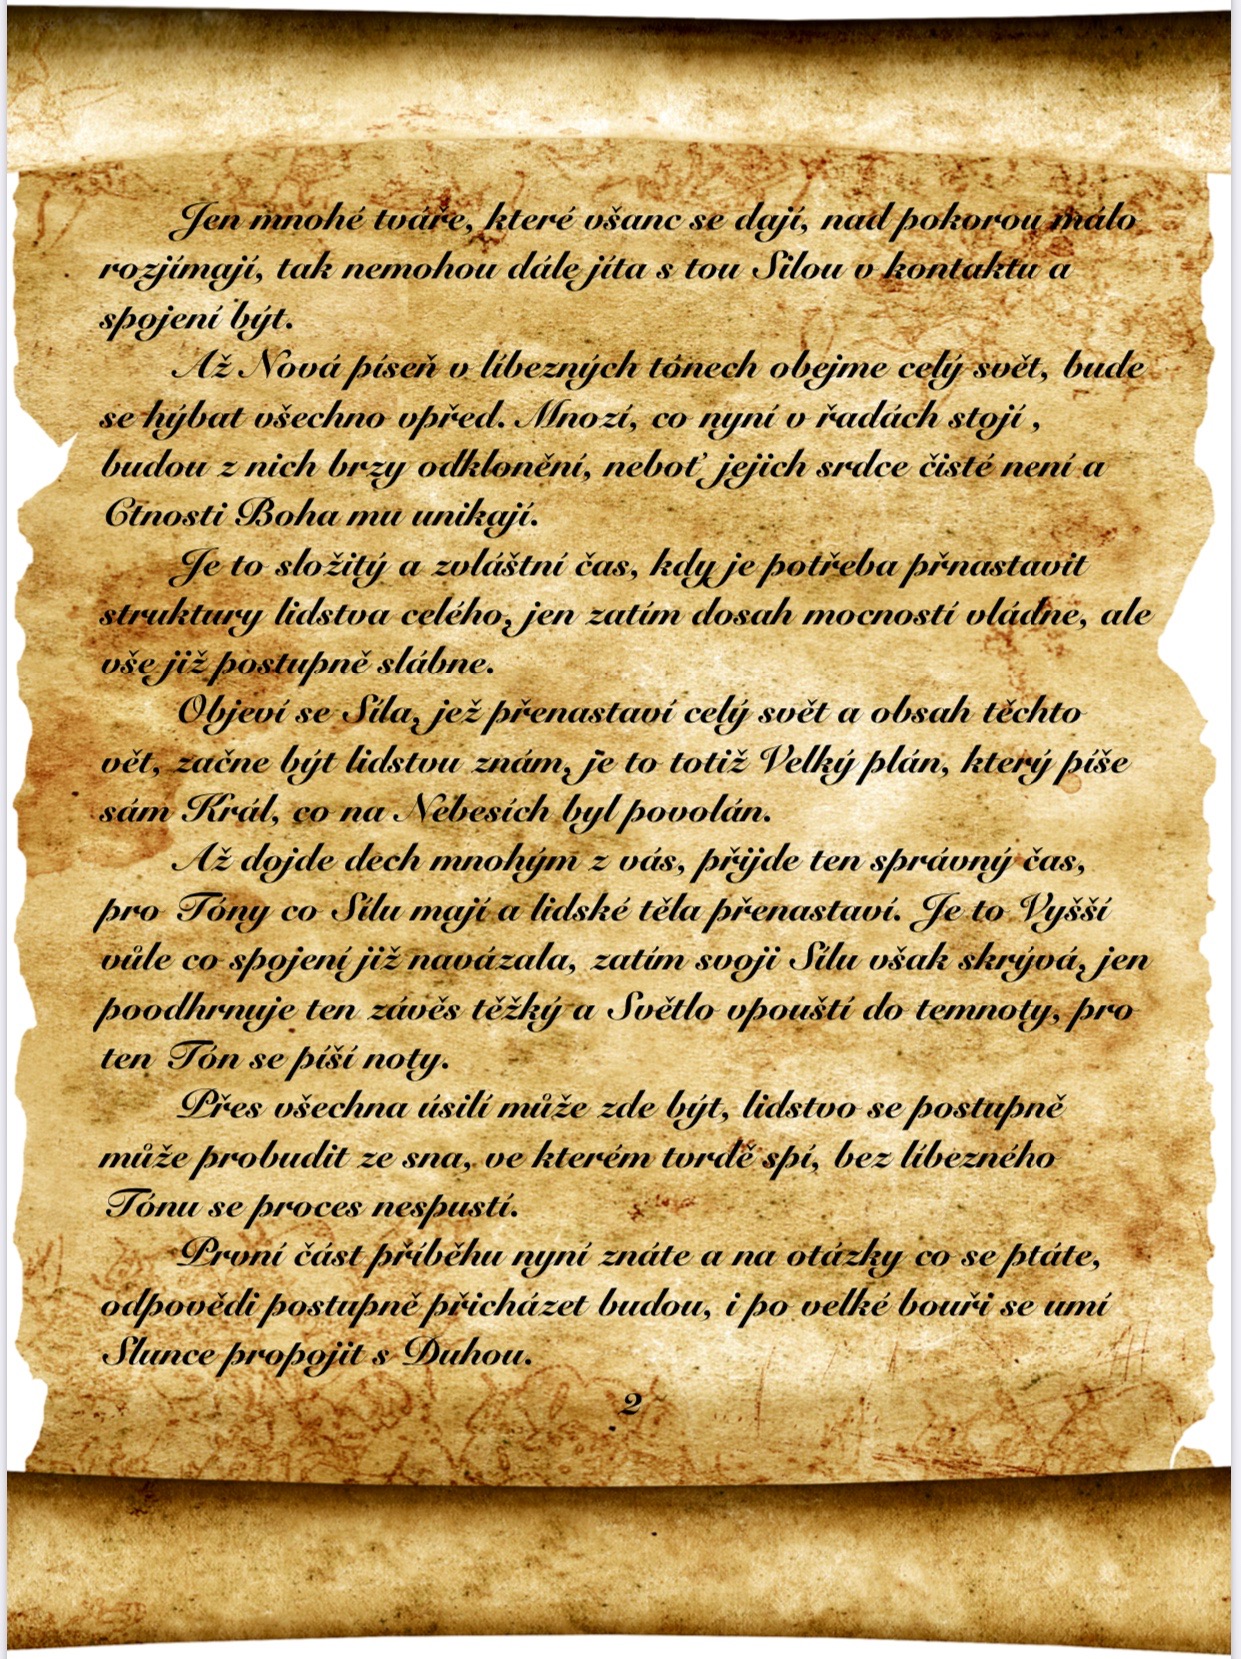 Jen mnohé tváře, které všanc se dají, nad pokorou málo
rozjímají, tak nemohou dále jíta s tou Silou v kontaktu a
spojení být.
Až Nová píseň v líbezných tónech obejme celý svět, bude
se hýbat všechno vpřed. Mnozí, co nyní v řadách stojí ,
budou z nich brzy odklonění, neboť jejich srdce čisté není a
Ctnosti Boha mu unikají.
Je to složitý a zvláštní čas, kdy je potřeba přnastavit
struktury lidstva celého, jen zatím dosah mocností vládne, ale
vše již postupně slábne.
Objeví se Síla, jež přenastaví celý svět a obsah těchto
vět, začne být lidstvu znám, je to totiž Velký plán, který píše
sám Král, co na Nebesích byl povolán.
Až dojde dech mnohým z vás, přijde ten správný čas,
pro Tóny co Sílu mají a lidské těla přenastaví. Je to Vyšší
vůle co spojení již navázala, zatím svoji Sílu však skrývá, jen
poodhrnuje ten závěs těžký a Světlo vpouští do temnoty, pro
ten Tón se píší noty.
Přes všechna úsilí může zde být, lidstvo se postupně
může probudit ze sna, ve kterém tvrdě spí, bez líbezného
Tónu se proces nespustí.
První část příběhu nyní znáte a na otázky co se ptáte,
odpovědi postupně přicházet budou, i po velké bouři se umí
Slunce propojit s Duhou.
2